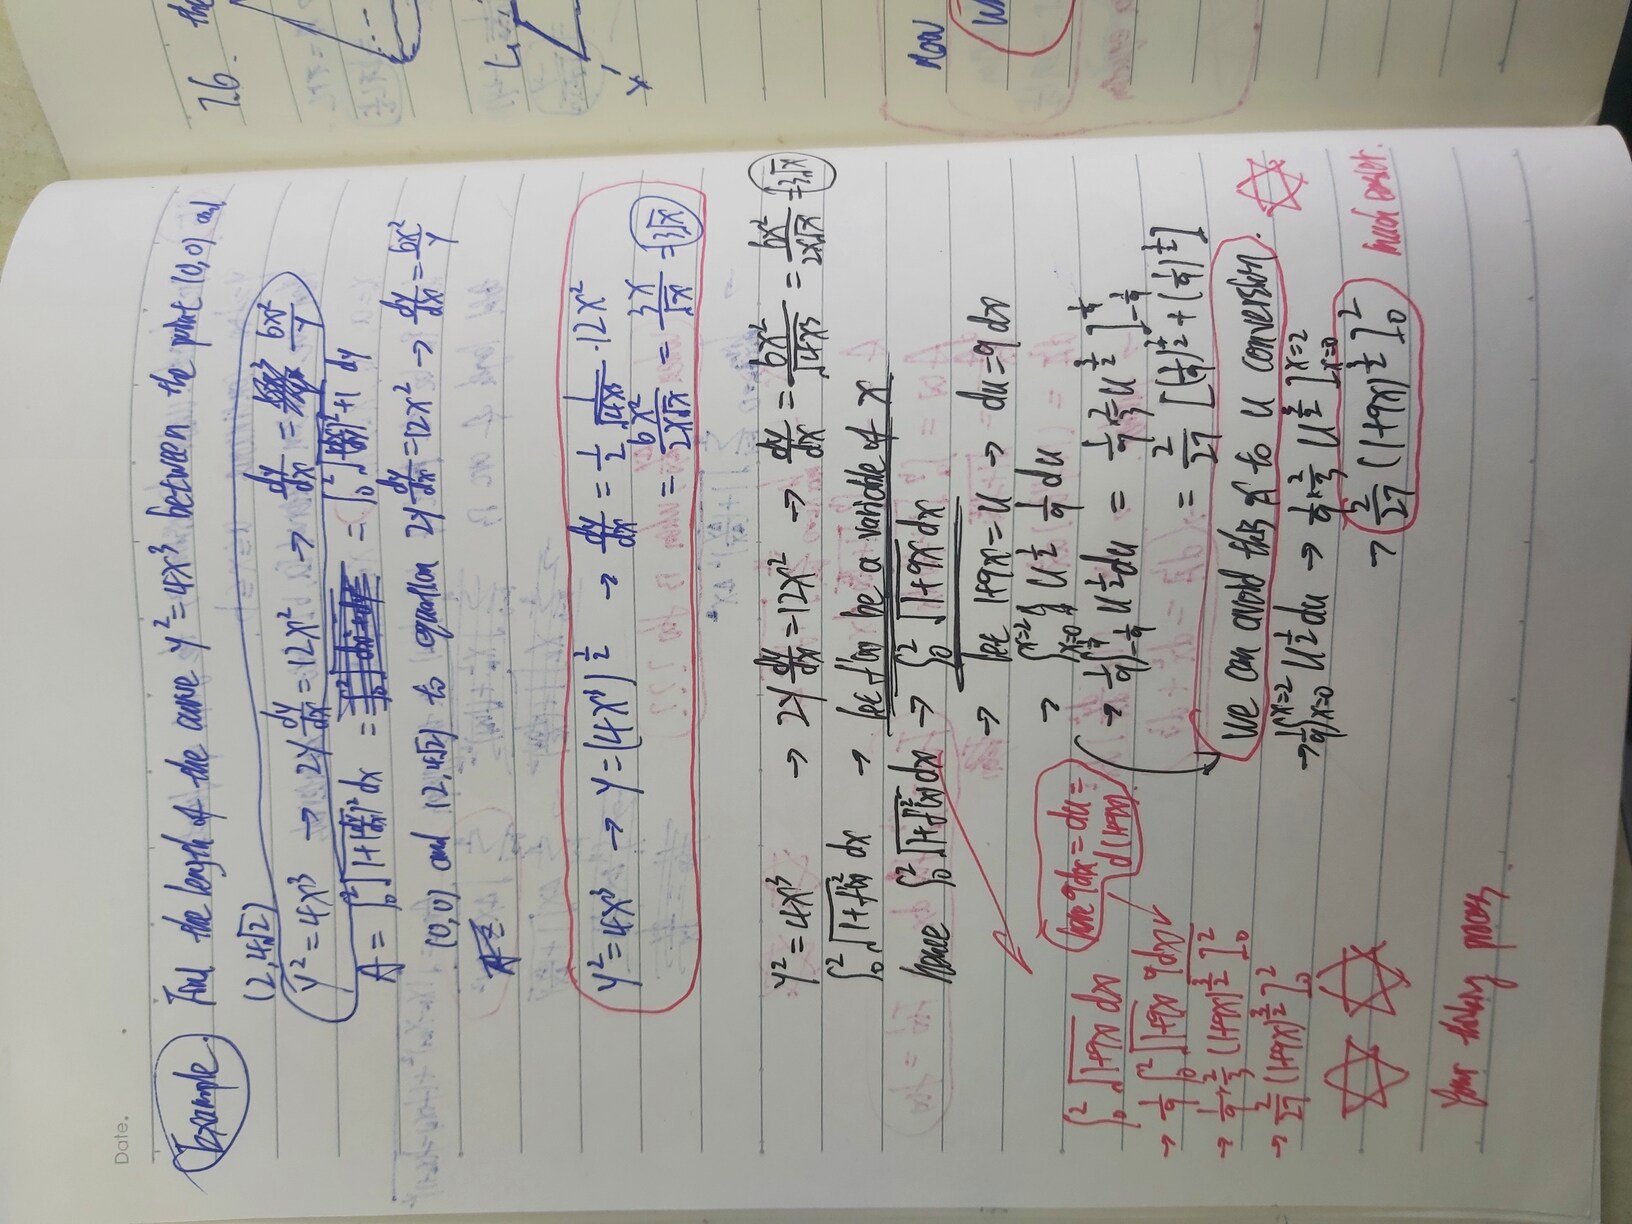 Date.
Example. Find the length of the curve y²=4x³ between the point (0,0) and
(2,4√2)
y²=4x³ → 2y dy/dx = 12x² → dy/dx = 6x²/y
A = ∫₀² √(1+(dy/dx)²) dx = = ∫₀² √((dx/dy)²+1) dy
(0,0) and (2,4√2) to equation 2y dy/dx = 12x² → dy/dx = 6x²/y
y²=4x³ → y=(4x³)^(1/2) → dy/dx = 1/2 1/√(4x³) ·12x²
= 6x²/(2x√x) = 3x/√x = 3√x
y²=4x³ → 2y dy/dx = 12x² → dy/dx = 6x²/√(4x³) = 6x²/(2x√x) = 3√x
∫₀² √(1+f'(x)²) dx → let f'(x) be a variable of x
hence ∫₀² √(1+f'(x)²) dx → ∫₀² √(1+9x) dx
→ let 1+9x=u → du=9dx
→ ∫_(x=0)^(x=2) u^(1/2) 1/9 du
→ 1/9 ∫_(-1/9)^(1/9) u^(1/2) du = 1/9 × 2/3 u^(3/2) ]_(-1/9)^(1/9)
= 2/27 [(1/9)^(3/2) + (1/9)^(3/2)]
we can avoid this x to u conversion.
→ 1/9 ∫_(x=0)^(x=2) u^(1/2) du → 1/9 × 2/3 u^(3/2) ]_(x=0)^(x=2)
→ 2/27 (1+9x)^(3/2) ]₀² much easier.
∫₀² √(1+9x) dx
have 9dx = du =
d(1+9x)
→ 1/9 ∫₀² √(1+9x) 9dx
→ 1/9 × 2/3 (1+9x)^(3/2) ]₀²
→ 2/27 (1+9x)^(3/2) ]₀²
Your thinking process.
7.6. the
L
x
now